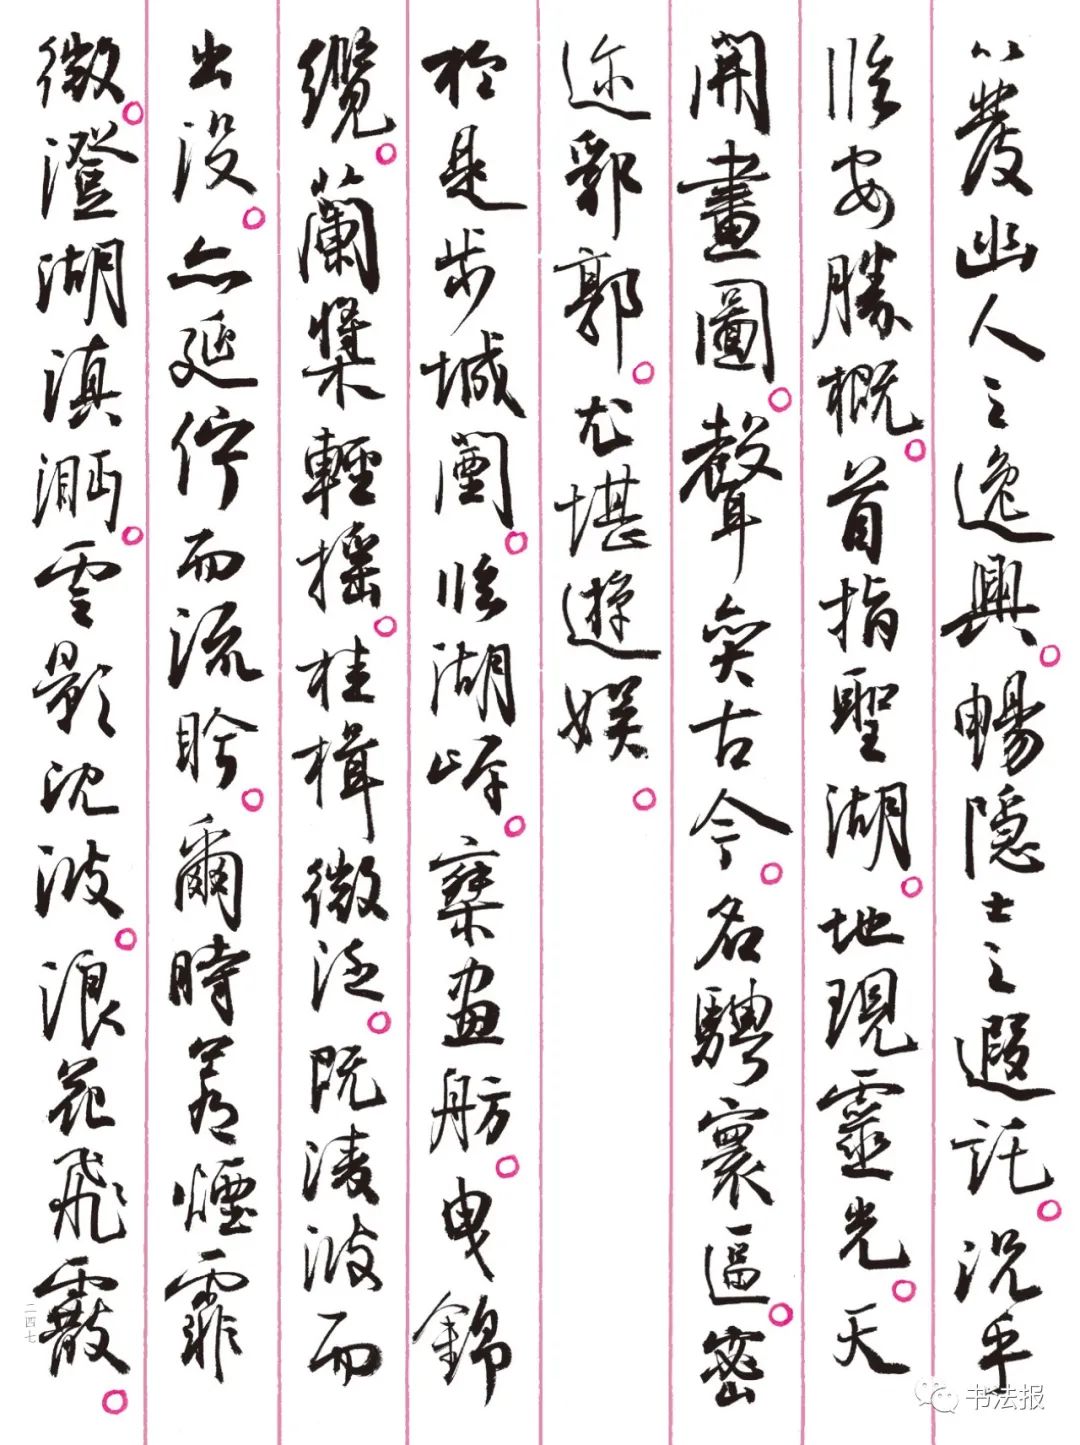 以發幽人之逸興。暢隱士之遐託。況乎
臨安勝概。首指聖湖。地現靈光。天
開畫圖。聲奕古今。名騁寰區。密
迩郛郭。尤堪遊娛。
於是步城闉。臨湖岸。画舫。曳錦
纜。蘭槳輕搖。桂楫微泛。既凌波而
出没。亦延佇而流盻。爾時若煙霏
微。澄湖滇。雲影沈波。浪花飛霰。
二四七
书法报